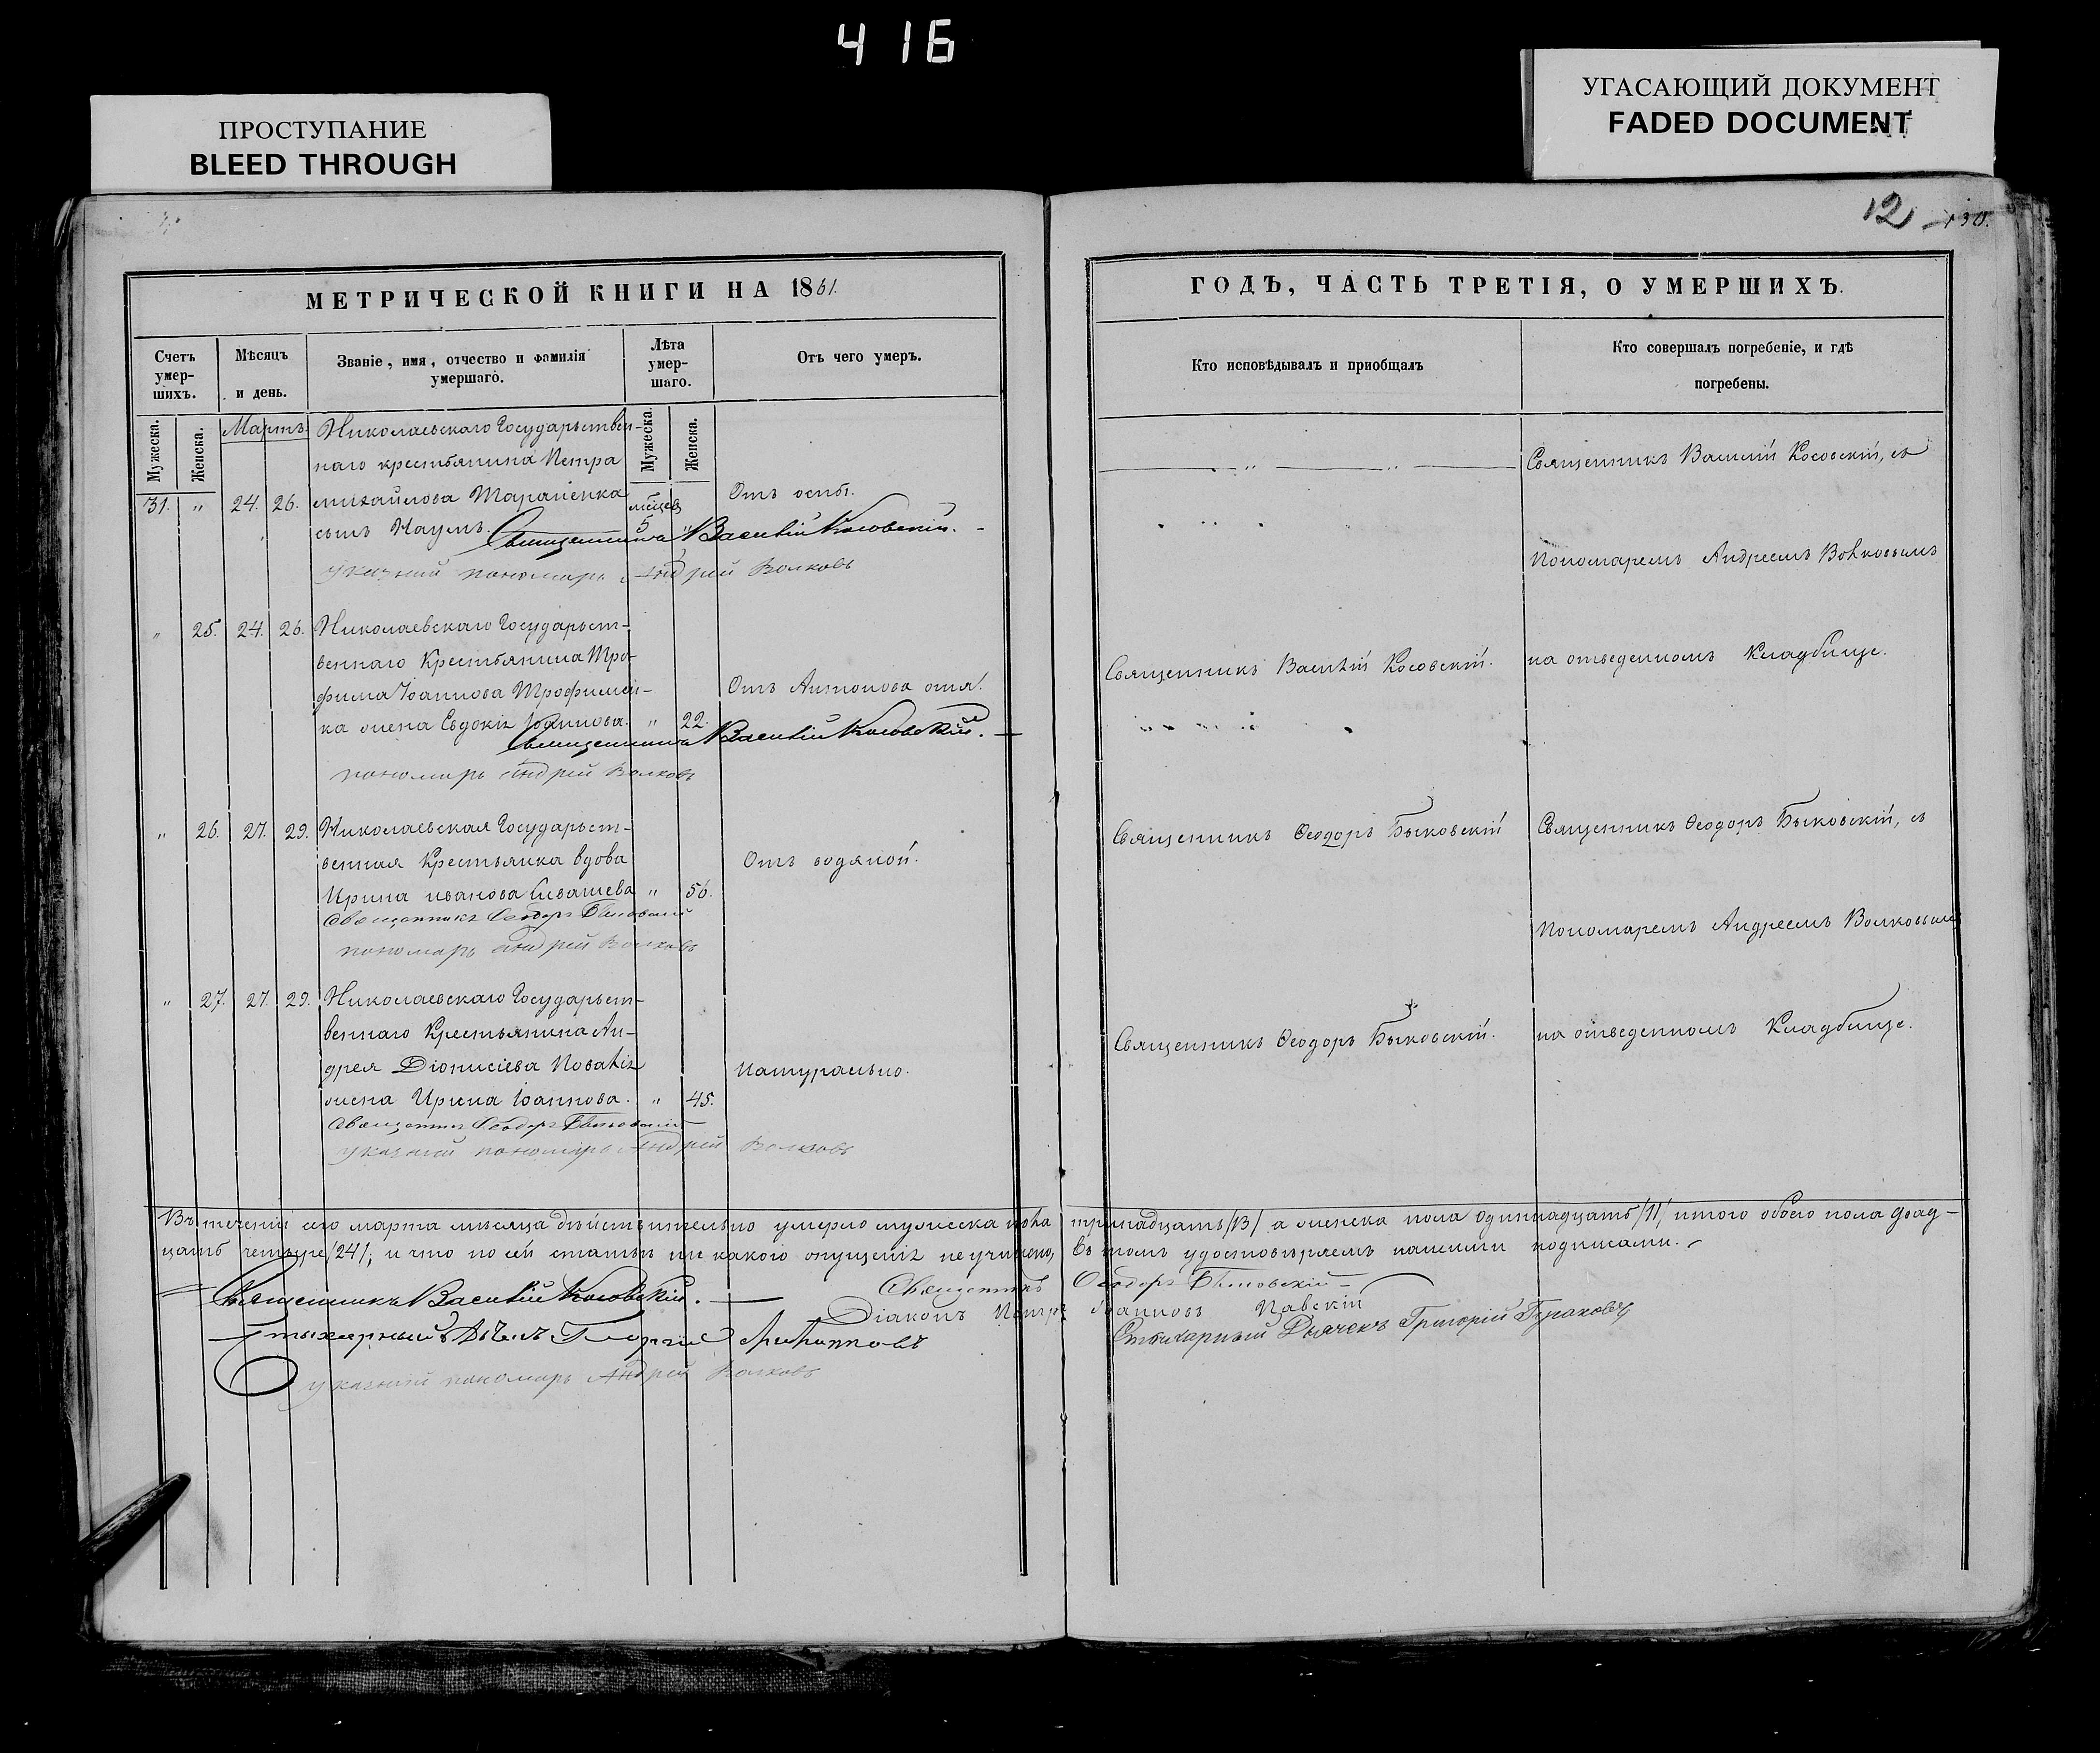 416
ПРОСТУПАНИЕ
BLEED THROUGH
УГАСАЮЩИЙ ДОКУМЕНТ
FADED DOCUMENT
12
МЕТРИЧЕСКОЙ КНИГИ НА 1861.
Счетъ умер-шихъ.
Мѣсяцъ и день.
Званіе, имя, отчество и фамилія умершаго.
Лѣта умер-шаго.
Отъ чего умеръ.
Мужеска.
Женска.
Мужеска.
Женска.
Мартъ.
Николаевскаго Государьствен-
наго крестьянина Петра
31. " 24. 26. михайлова
сынъ Наумъ. 5 " Отъ оспы.
Священникъ Василій Косовскій.
указний пономарь Андрей Волковъ
" 25. 24. 26. Николаевскаго Государьст-
веннаго Крестьянина Тро-
фима Іоаннова Трофимен-
ка жена Евдокія Іоаннова. " 22. Отъ Антонова огня.
Священникъ Василій Косовскій.
пономарь Андрей Волковъ
" 26. 27. 29. Николаевская Государьст-
венная Крестьянка вдова
Ирина иванова " 56. Отъ водяной.
Священникъ Ѳеодоръ Быковскій
пономарь Андрей Волковъ
" 27. 27. 29. Николаевскаго Государьст-
веннаго Крестьянина Ан-
дрея Діонисіева
жена Ирина Іоаннова. " 45. Натурально.
Священникъ Ѳеодоръ Быковскій
указний пономарь Андрей Волковъ
ГОДЪ, ЧАСТЬ ТРЕТІЯ, О УМЕРШИХЪ.
Кто исповѣдывалъ и приобщалъ
Кто совершалъ погребеніе, и гдѣ погребены.
Священникъ Василій Косовскій, съ
Пономаремъ Андреемъ Волковымъ
Священникъ Василій Косовскій. на отведенномъ Кладбище.
Священникъ Ѳеодоръ Быковскій Священникъ Ѳеодоръ Быковскій, съ
Пономаремъ Андреемъ Волковымъ
Священникъ Ѳеодоръ Быковскій. на отведенномъ Кладбище.
Въ теченіи сего марта мѣсяца дѣйствительно умерло мужеска пола тринадцать /13/ а женска пола одиннадцать /11/, итого обоего пола двад-
цать четыре /24/; и что по сей статьѣ ни какого опущенія не учинено, въ томъ удостовѣряемъ нашими подписами.
Священникъ Василій Косовскій.
Священникъ Ѳеодоръ Быковскій
Діаконъ Петръ Іоанновъ Павскій
Стихарный Дьячекъ Григорій
указний пономарь Андрей Волковъ